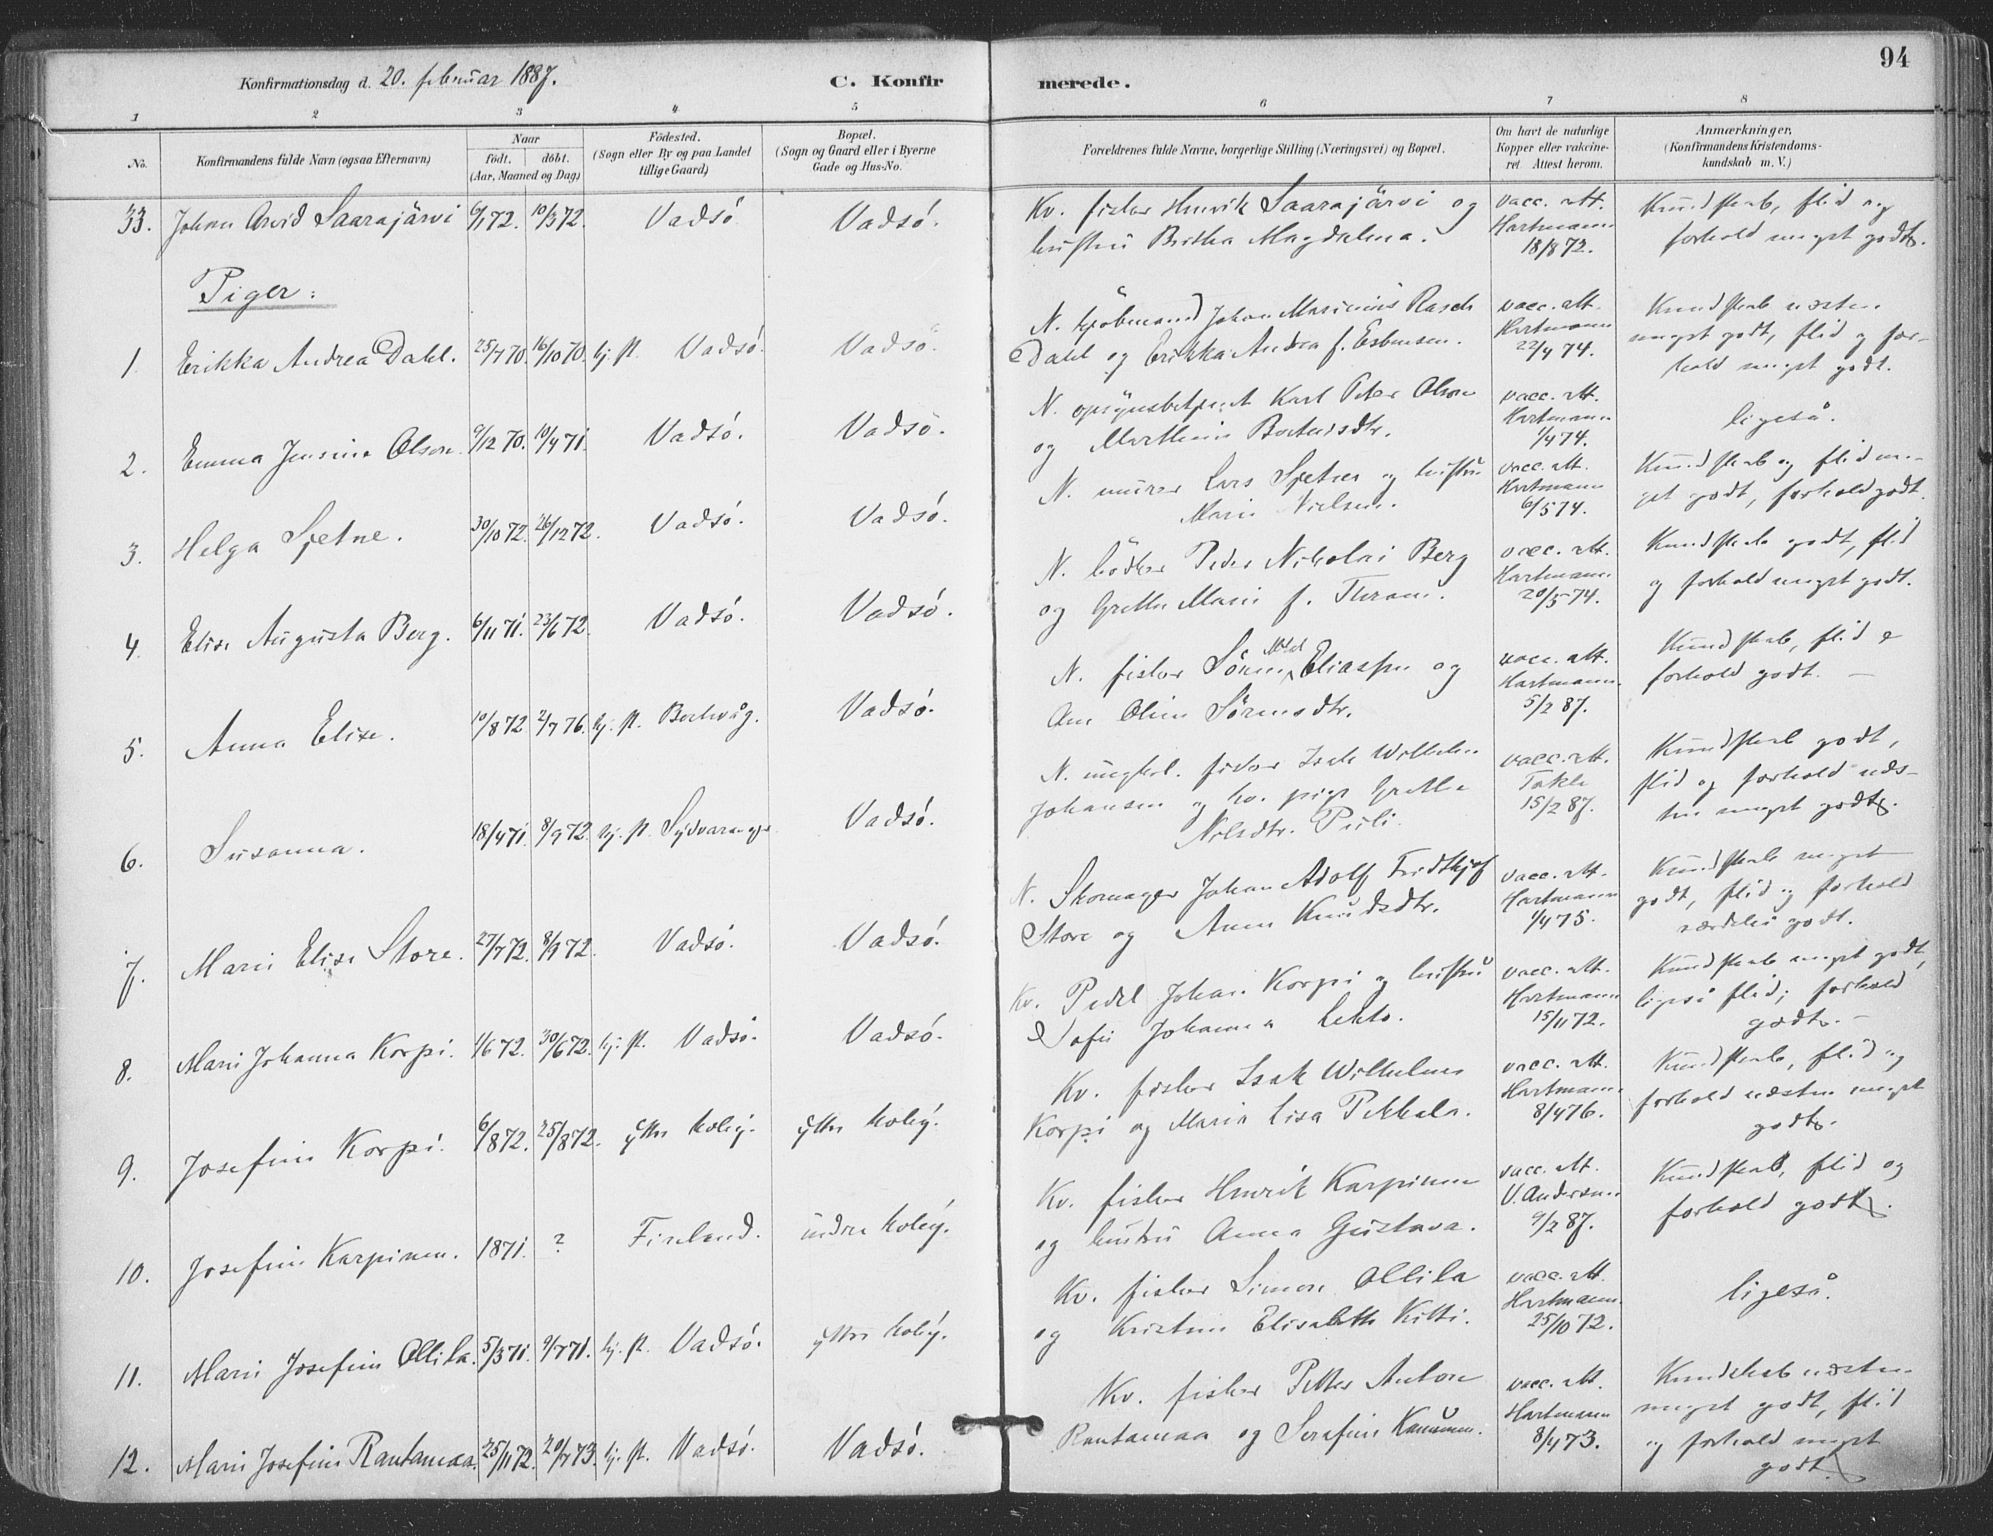 94
Konfirmationsdag d. 20. februar 1887.
C. Konfir merede.
1 2 3 4 5 6 7 8
No.
Konfirmandens fulde Navn (ogsaa Efternavn)
Naar
født. døbt.
(Aar, Maaned og Dag)
Fødested.
(Sogn eller By og paa Landet
tillige Gaard)
Bopæl.
(Sogn og Gaard eller i Byerne
Gade og Hus-No.
Forældrenes fulde Navne, borgerlige Stilling (Næringsvei) og Bopæl.
Om havt de naturlige
Kopper eller vakcine-
ret. Attest herom.
Anmærkninger.
(Konfirmandens Kristendoms-
kundskab m. V.)
33. Johan Arvid Saarajärvi 6/1 72. 10/3 72. Vadsö Vadsö.
Kv. fisker Henrik Saarajärvi og
hustru Britha Magdalena.
vacc. att.
Hartmann
18/8 72.
Kundskab, flid og
forhold meget godt.
Piger:
1. Erikka Andrea Dahl. 25/7 70. 16/10 70. hj. db. Vadsö. Vadsö.
N. kjøbmand Johan Marinius Rasch
Dahl og Erikka Andrea f. Esbensen.
vacc. att.
Hartmann
22/4 74.
Kundskab næsten
meget godt, flid og for-
hold meget godt.
2. Emma Jensine Olsen. 9/12 70. 10/4 71. Vadsö. Vadsö.
N. opsynsbetjent Karl Peter Olsen
og
vacc. att.
Hartmann
1/4 74.
ligeså.
3. Helga Sjetne. 30/10 72. 26/12 72. Vadsö. Vadsö.
N. murer Lars Sjetne og hustru
Marie Nielsen.
vacc. att.
Hartmann
6/5 74.
Kundskab og flid me-
get godt, forhold godt.
4. Elise Augusta Berg. 6/11 71. 23/6 72. Vadsö. Vadsö.
N. bødker Peder Nikolai Berg
og Grethe Marie f.
vacc. att.
Hartmann
20/5 74.
Kundskab godt, flid
og forhold meget godt.
5. Anna Elise. 10/8 72 2/7 76. hj. db. Vadsö.
N. fisker Sören Eliassen og
Ane Oline Sörensdtr.
vacc. att.
Hartmann.
5/2 87.
Kundskab, flid &
forhold godt. —
6. Susanna. 18/4 71. 8/9 72. hj. db. Sydvaranger Vadsö.
N. ungkarl. fisker Isak Wilhelm
Johansen og kv. pige Grethe
Nilsdtr. Puli.
vacc. att.
Takle
15/2 87.
Kundskab godt,
flid og forhold næs-
ten meget godt.
7. Marie Elise Store. 27/7 72. 8/9 72. Vadsö. Vadsö.
N. Skomager Johan Adolf Fridthjof
Store og Anna Knudsdtr.
vacc. att.
Hartmann
1/4 75.
Kundskab meget
godt, flid og forhold
særdeles godt.
8. Marie Johanna Korpi. 1/6 72. 30/6 72. hj. db. Vadsö. Vadsö.
Kv. Petter Johan Korpi og hustru
Sofie Johanna Lehto.
vacc. att.
Hartmann
15/11 72.
Kundskab meget godt,
ligeså flid; forhold
godt. —
9. Josefine Korpi. 6/8 72. 25/8 72. ytre koløy. ytre koløy.
Kv. fisker Isak Wilhelm
Korpi og Maria Lisa Pekkala.
vacc. att.
Hartmann.
8/4 76.
Kundskab, flid og
forhold næsten meget
godt.
10. Josefine Karpinen. 1871. ? Finland. indre koløy.
Kv. fisker Henrik Karpinen
og hustru Anna Gustava.
vacc. att.
U. Andersen
9/2 87.
Kundskab, flid og
forhold godt.
11. Marie Josefine Ollila. 5/3 71. 9/7 71. hj. db. Vadsö. ytre koløy.
Kv. fisker Simon Ollila
og Kristine Elisabeth Kitti.
vacc. att.
Hartmann.
25/10 72.
ligeså.
12. Marie Josefine Rantamaa. 25/11 72. 20/7 73. hj. db. Vadsö. Vadsö.
Kv. fisker Petter Anton
Rantamaa og Serafine
vacc. att.
Hartmann
8/4 73.
Kundskab næsten
meget godt, flid
og forhold meget
godt.